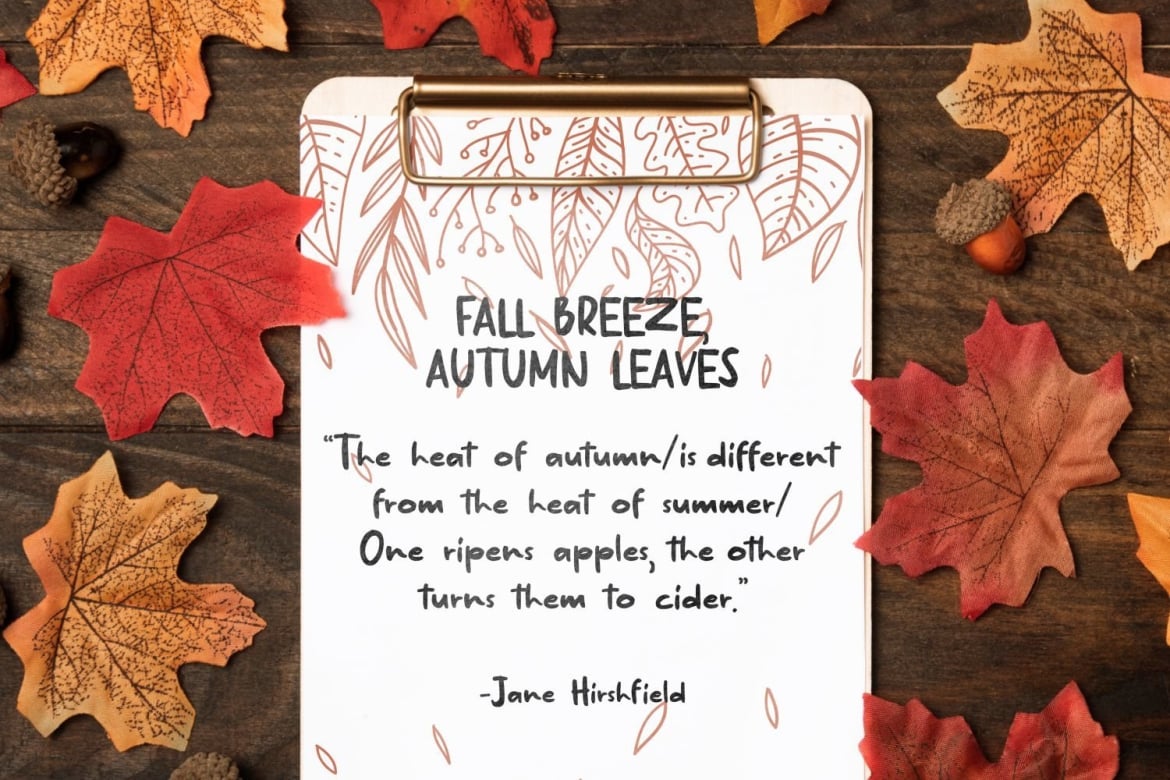 FALL BREEZE,
AUTUMN LEAVES
“The heat of autumn/is different
from the heat of summer/
One ripens apples, the other
turns them to cider.”
-Jane Hirshfield